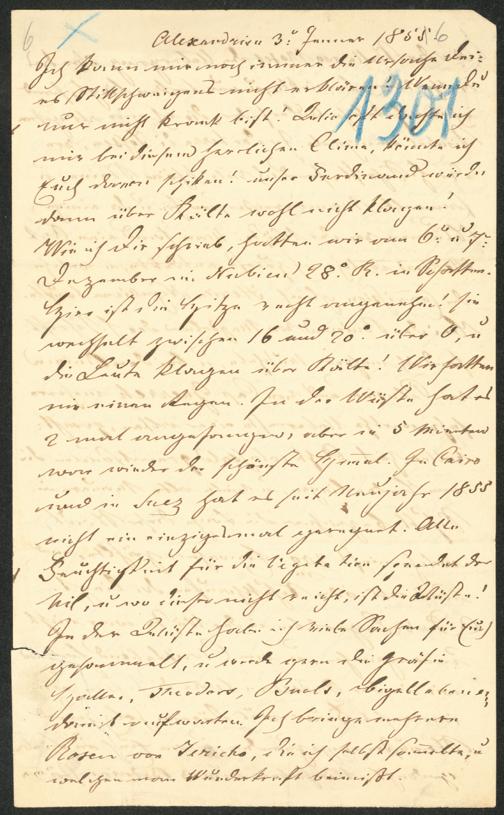 6
Alexandrien 3: Jenner 1856
1301
Ich kann mir noch immer die Ursache Dei-
nes Stillschweigens nicht erklären! Wenn Du
nur nicht krank bist! Wie oft wünsche ich
mir bei diesem herrlichen Clima, könnte ich
Euch davon schiken! unser Ferdinand würde
dann über Kälte wohl nicht klagen!
Wie ich Dir schrieb, hatten wir am 6: u 7:
Dezember in Nubien 28° R. in Schatten.
Hier ist die Hitze recht angenehm! sie
wechselt zwischen 16 und 20° über 0, u
die Leute klagen über Kälte! Wir hatten
nie einen Regen. In der Wüste hat es
2 mal angefangen, aber in 5 Minuten
war wieder der schönste Himmel. In Cairo
und in Suez hat es seit Neujahr 1855
nicht ein einzigesmal geregnet. Alle
Feuchtigkeit für die Vegetation spendet der
Nil, u wo dieser nicht reicht, ist die Wüste!
In der Wüste habe ich viele Sachen für Euch
gesammelt, u werde gern die Gräfin
Theodoro,
damit aufwarten. Ich bringe mehrere
Rosen von Jericho, die ich selbst sammelte, u
welchen man Wunderkraft beimißt.